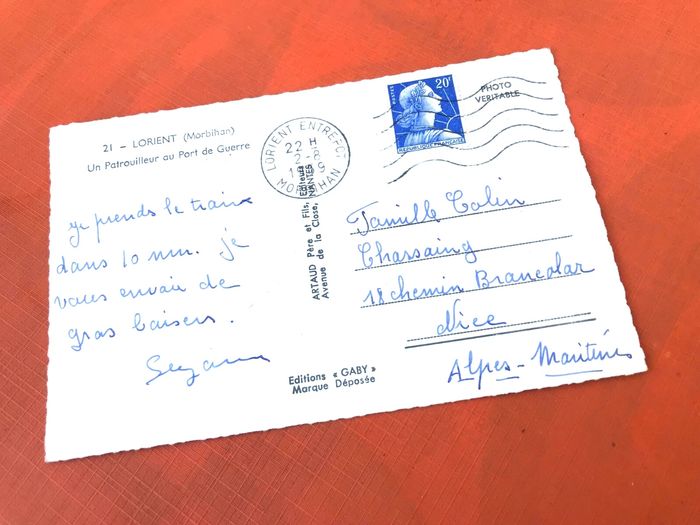 21 - LORIENT (Morbihan)
Un Patrouilleur au Port de Guerre
je prends le train
dans 10 mn. je
vous envoie de
gros baisers.
LORIENT ENTREPOT
22 H
2-8
MORBIHAN
ARTAUD Père et Fils, Editeurs
Avenue de la Close, NANTES
Editions « GABY »
Marque Déposée
POSTES
20F
REPUBLIQUE FRANÇAISE
PHOTO
VERITABLE
Famille Colin
Chassaing
18 chemin Brancolar
Nice
Alpes-Maritimes